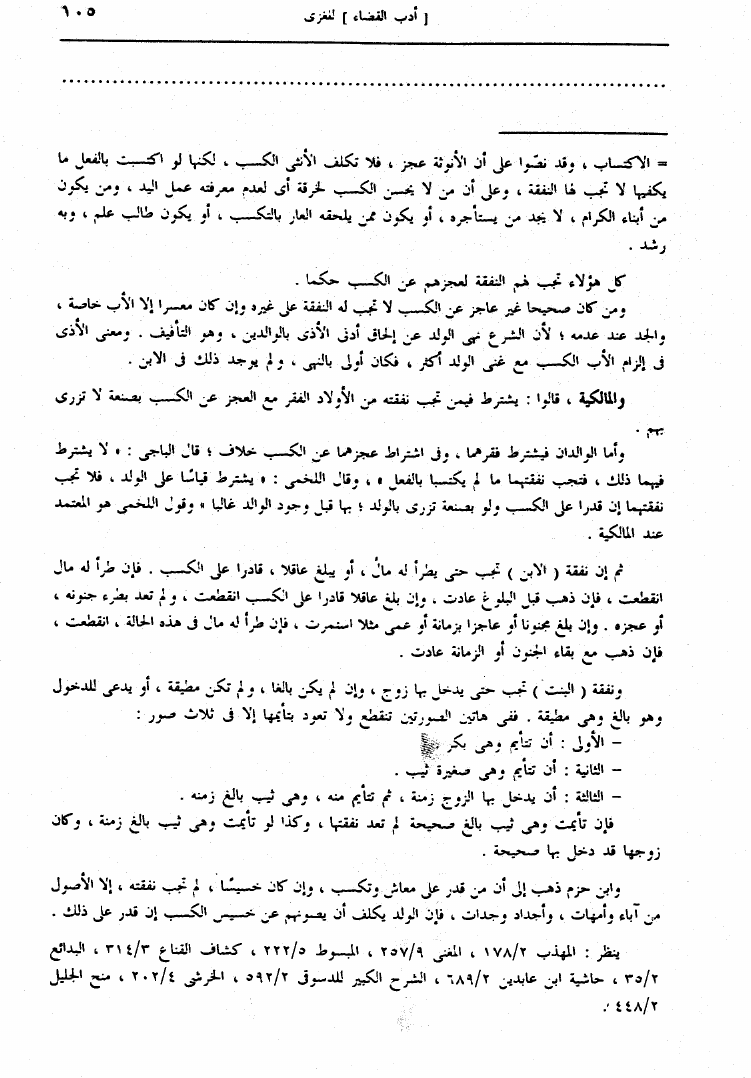 [ أدب القضاء ] للغزى ١٠٥
= الاكتساب ، وقد نصّوا على أن الأنوثة عجز ، فلا تكلف الأنثى الكسب ، لكنها لو اكتسبت بالفعل ما
يكفيها لا تجب لها النفقة ، وعلى أن من لا يحسن الكسب لخرقة أى لعدم معرفته عمل اليد ، ومن يكون
من أبناء الكرام ، لا يجد من يستأجره ، أو يكون ممن يلحقه العار بالتكسب ، أو يكون طالب علم ، وبه
رشد .
كل هؤلاء تجب لهم النفقة لعجزهم عن الكسب حكما .
ومن كان صحيحا غير عاجز عن الكسب لا تجب له النفقة على غيره وإن كان معسرا إلا الأب خاصة ،
والجد عند عدمه ؛ لأن الشرع نهى الولد عن إلحاق أدنى الأذى بالوالدين ، وهو التأفيف . ومعنى الأذى
فى إلزام الأب الكسب مع غنى الولد أكثر ، فكان أولى بالنهى ، ولم يوجد ذلك فى الابن .
والمالكية ، قالوا : يشترط فيمن تجب نفقته من الأولاد الفقر مع العجز عن الكسب بصنعة لا تزرى
بهم .
وأما الوالدان فيشترط فقرهما ، وفى اشتراط عجزهما عن الكسب خلاف ؛ قال الباجى : « لا يشترط
فيهما ذلك ، فتجب نفقتهما ما لم يكتسبا بالفعل » ، وقال اللخمى : « يشترط قياسًا على الولد ، فلا تجب
نفقتهما إن قدرا على الكسب ولو بصنعة تزرى بالولد ؛ بها قبل وجود الوالد غالبا » وقول اللخمى هو المعتمد
عند المالكية .
ثم إن نفقة ( الابن ) تجب حتى يطرأ له مالٌ ، أو يبلغ عاقلا ، قادرا على الكسب . فإن طرأ له مال
انقطعت ، فإن ذهب قبل البلوغ عادت ، وإن بلغ عاقلا قادرا على الكسب انقطعت ، ولم تعد بطرء جنونه ،
أو عجزه . وإن بلغ مجنونا أو عاجزا بزمانة أو عمى مثلا استمرت ، فإن طرأ له مال فى هذه الحالة ، انقطعت ،
فإن ذهب مع بقاء الجنون أو الزمانة عادت .
ونفقة ( البنت ) تجب حتى يدخل بها زوج ، وإن لم يكن بالغا ، ولم تكن مطيقة ، أو يدعى للدخول
وهو بالغ وهى مطيقة . ففى هاتين الصورتين تنقطع ولا تعود بتأيمها إلا فى ثلاث صور :
– الأولى : أن تتأيم وهى بكر
– الثانية : أن تتأيم وهى صغيرة ثيب .
– الثالثة : أن يدخل بها الزوج زمنة ، ثم تتأيم منه ، وهى ثيب بالغ زمنه .
فإن تأيمت وهى ثيب بالغ صحيحة لم تعد نفقتها ، وكذا لو تأيمت وهى ثيب بالغ زمنة ، وكان
زوجها قد دخل بها صحيحة .
وابن حزم ذهب إلى أن من قدر على معاش وتكسب ، وإن كان خسيسًا ، لم تجب نفقته ، إلا الأصول
من آباء وأمهات ، وأجداد وجدات ، فإن الولد يكلف أن يصونهم عن خسيس الكسب إن قدر على ذلك .
ينظر : المهذب ١٧٨/٢ ، المغنى ٢٥٧/٩ ، المبسوط ٢٢٢/٥ ، كشاف القناع ٣١٤/٣ ، البدائع
٣٥/٢ ، حاشية ابن عابدين ٦٨٩/٢ ، الشرح الكبير للدسوقى ٥٩٢/٢ ، الخرشى ٢٠٢/٤ ، منح الجليل
٤٤٨/٢ .